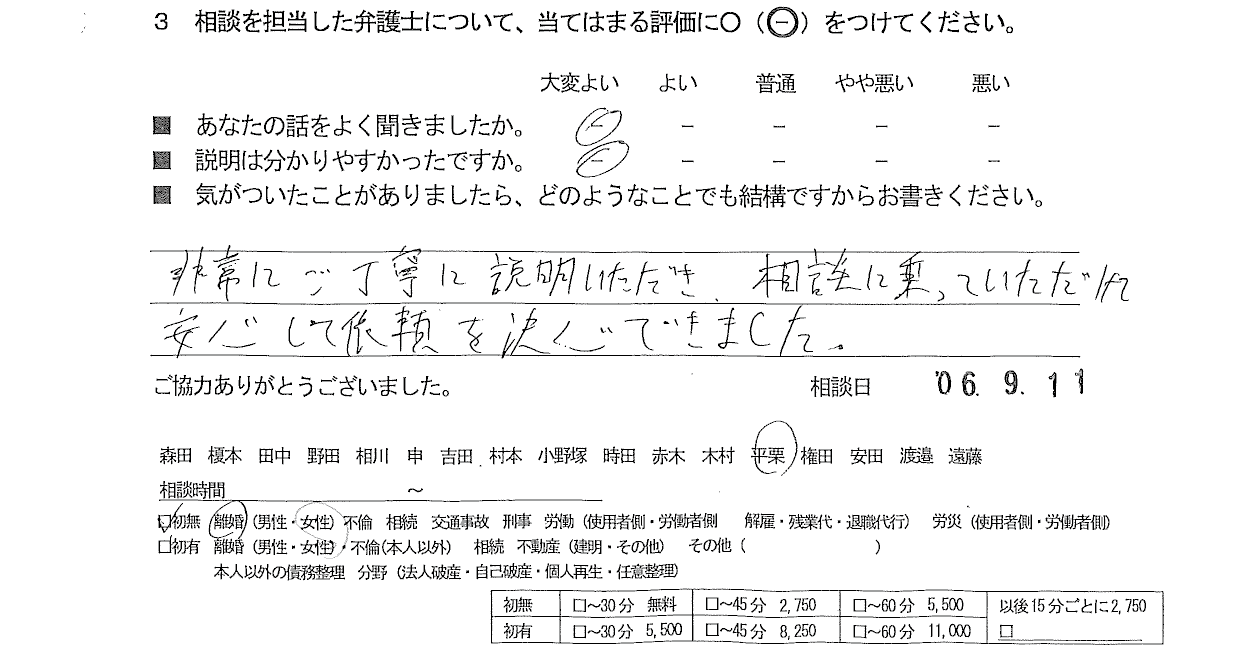 3 相談を担当した弁護士について、当てはまる評価に○（㊀）をつけてください。
大変よい よい 普通 やや悪い 悪い
■ あなたの話をよく聞きましたか。 － － － － －
■ 説明は分かりやすかったですか。 － － － － －
■ 気がついたことがありましたら、どのようなことでも結構ですからお書きください。
非常にご丁寧に説明いただき、相談に乗っていただけて
安心して依頼を決心できました。
ご協力ありがとうございました。 相談日 '06. 9. 11
森田 榎本 田中 野田 相川 申 吉田 村本 小野塚 時田 赤木 木村 平栗 権田 安田 渡邉 遠藤
相談時間 ～
□初無 離婚（男性・女性）不倫 相続 交通事故 刑事 労働（使用者側・労働者側 解雇・残業代・退職代行） 労災（使用者側・労働者側）
□初有 離婚（男性・女性）・不倫（本人以外） 相続 不動産（建明・その他） その他（ ）
本人以外の債務整理 分野（法人破産・自己破産・個人再生・任意整理）
初無 □～30分 無料 □～45分 2,750 □～60分 5,500 以後15分ごとに2,750
初有 □～30分 5,500 □～45分 8,250 □～60分 11,000 □